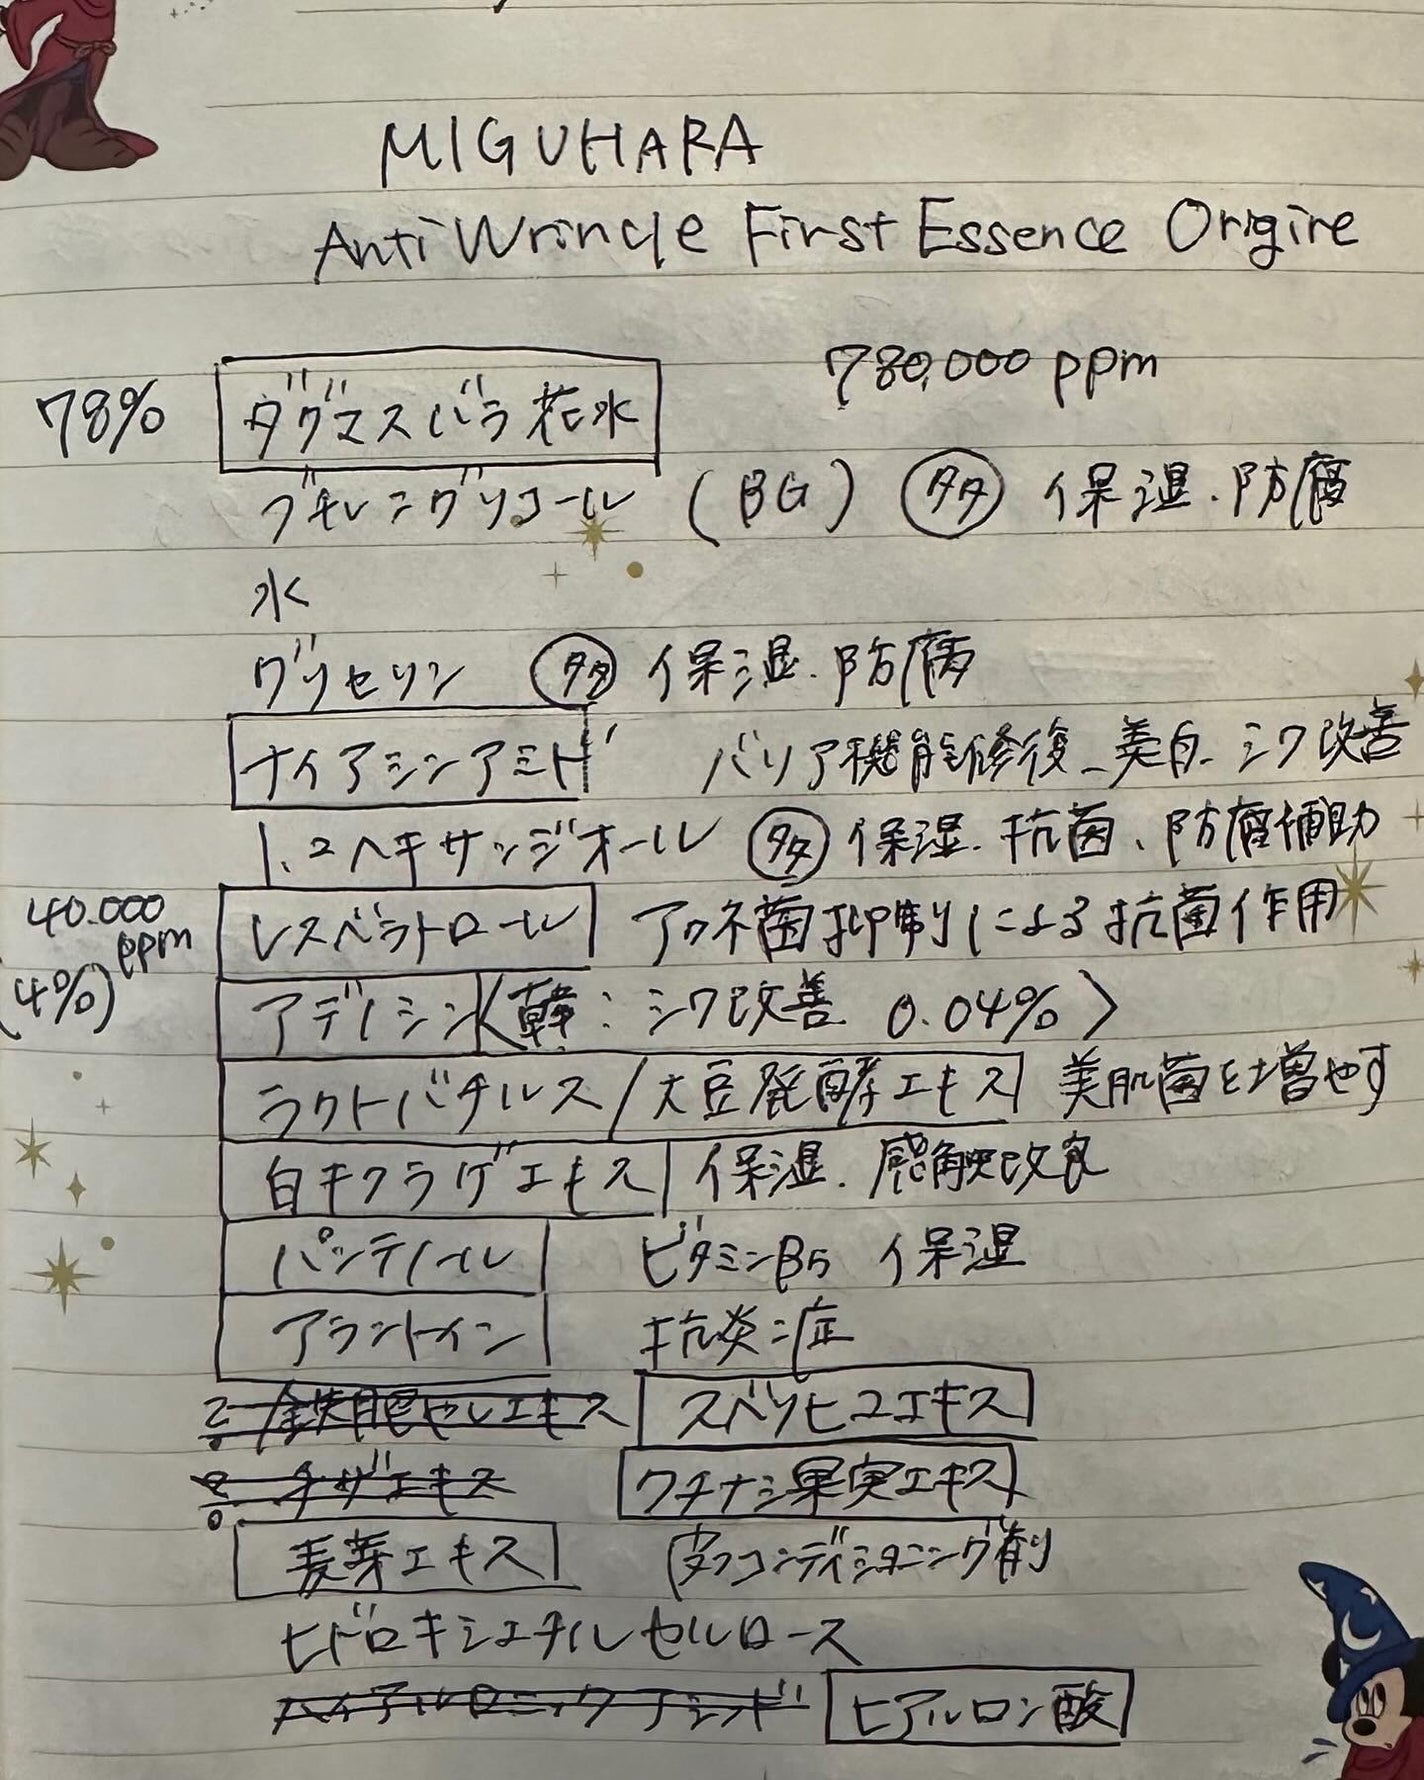 MIGUHARA
Anti Wrincle First Essence Origine
780,000 ppm
78% ダグマスバラ花水
ブチレングリコール (BG) 多 保湿.防腐
水
グリセリン 多 保湿.防腐
ナイアシンアミド バリア機能修復_美白_シワ改善
1.2ヘキサンジオール 多 保湿.抗菌、防腐補助
40.000 ppm (4%) レスベラトロール アクネ菌抑制による抗菌作用
アデノシン〈韓:シワ改善 0.04%〉
ラクトバチルス/大豆発酵エキス 美肌菌を増やす
白キクラゲエキス 保湿.感触改良
パンテノール ビタミンB5 保湿
アラントイン 抗炎症
スベリヒユエキス
? チザエキス クチナシ果実エキス
麦芽エキス 皮フコンディショニング剤
ヒドロキシエチルセルロース
ハイアルロニックアシッド ヒアルロン酸